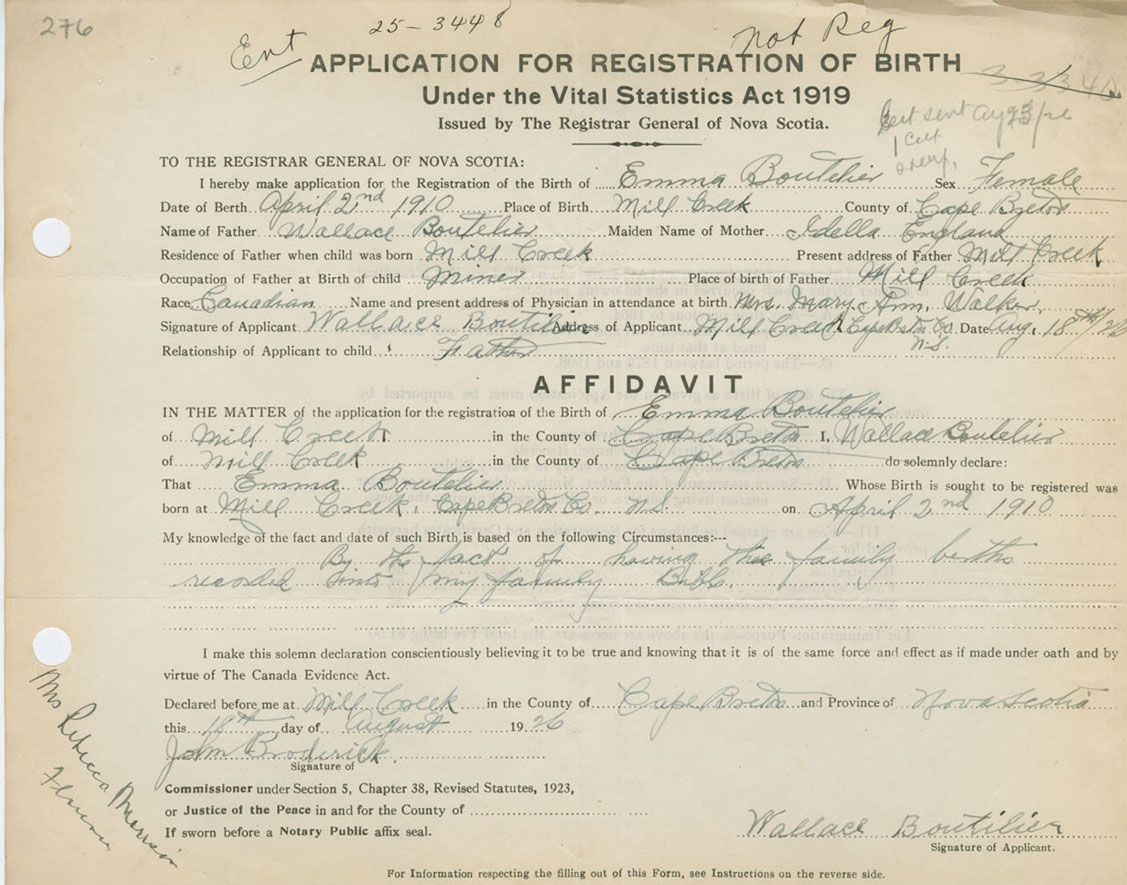 276
25-3448
Ent
Not Reg
APPLICATION FOR REGISTRATION OF BIRTH
Under the Vital Statistics Act 1919
Issued by The Registrar General of Nova Scotia.
TO THE REGISTRAR GENERAL OF NOVA SCOTIA:
I hereby make application for the Registration of the Birth of Emma Boutelier Sex Female
Date of Berth April 2nd 1910 Place of Birth Mill Creek County of Cape Breton
Name of Father Wallace Boutelier Maiden Name of Mother Idella England
Residence of Father when child was born Mill Creek Present address of Father Mill Creek
Occupation of Father at Birth of child Miner Place of birth of Father Mill Creek
Race Canadian Name and present address of Physician in attendance at birth Mrs. Mary Ann. Walker
Signature of Applicant Wallace Boutilier Address of Applicant Mill Creek Cape Breton Co. N.S. Date Aug. 18th/26
Relationship of Applicant to child Father
AFFIDAVIT
IN THE MATTER of the application for the registration of the Birth of Emma Boutelier
of Mill Creek in the County of Cape Breton I, Wallace Boutelier
of Mill Creek in the County of Cape Breton do solemnly declare:
That Emma Boutelier Whose Birth is sought to be registered was
born at Mill Creek, Cape Breton Co. N.S. on April 2nd 1910
My knowledge of the fact and date of such Birth is based on the following Circumstances:--
By the fact of having the family births
recorded my family Bible.
I make this solemn declaration conscientiously believing it to be true and knowing that it is of the same force and effect as if made under oath and by
virtue of The Canada Evidence Act.
Declared before me at Mill Creek in the County of Cape Breton and Province of Nova Scotia
this 18th day of August 1926
John Broderick.
Signature of
Commissioner under Section 5, Chapter 38, Revised Statutes, 1923,
or Justice of the Peace in and for the County of
If sworn before a Notary Public affix seal.
Wallace Boutilier
Signature of Applicant.
For Information respecting the filling out of this Form, see Instructions on the reverse side.
Mrs Rebecca